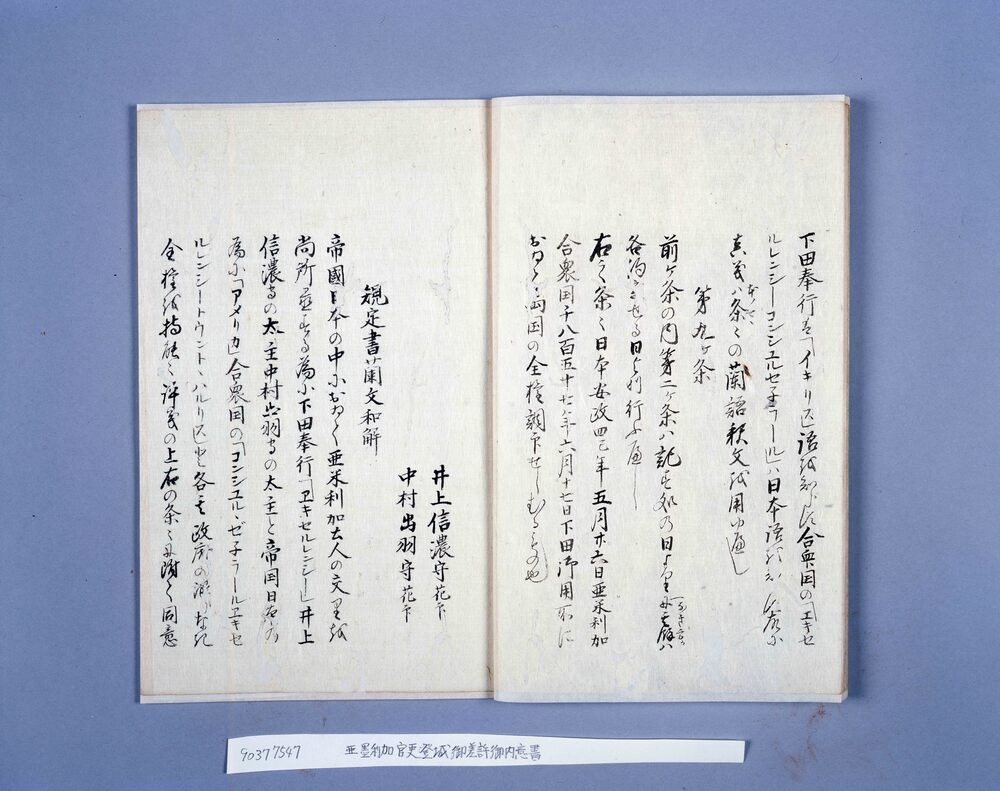 下田奉行はイキリス語を知らす合衆国のエキセ
ルレンシーコンシュルセネラールは日本語を知らす故に
真義ハ条々の蘭語釈文を用ゆへし
第九ヶ条
前ヶ条の内第二ヶ条ハ記せる処の日より其余ハ
各約定せる日より行ふへし
右之条々日本安政四巳年五月廿六日亜米利加
合衆国千八百五十七年六月十七日下田御用所に
おゐて両国の全権調印せしむるもの也
井上信濃守花押
中村出羽守花押
規定書蘭文和解
帝國日本の中におゐて亜米利加士人の交
為に下田奉行エキセルレンシー井上
信濃守の太主中村出羽守の太主と帝国日本
為にアメリカ合衆国のコンシュルゼネラールエキセ
ルレンシートウンセントハルリス と各其政府の
全権を持
評義の上右の条々
同意
90377547 亜墨利加官吏登城御差許御内意書